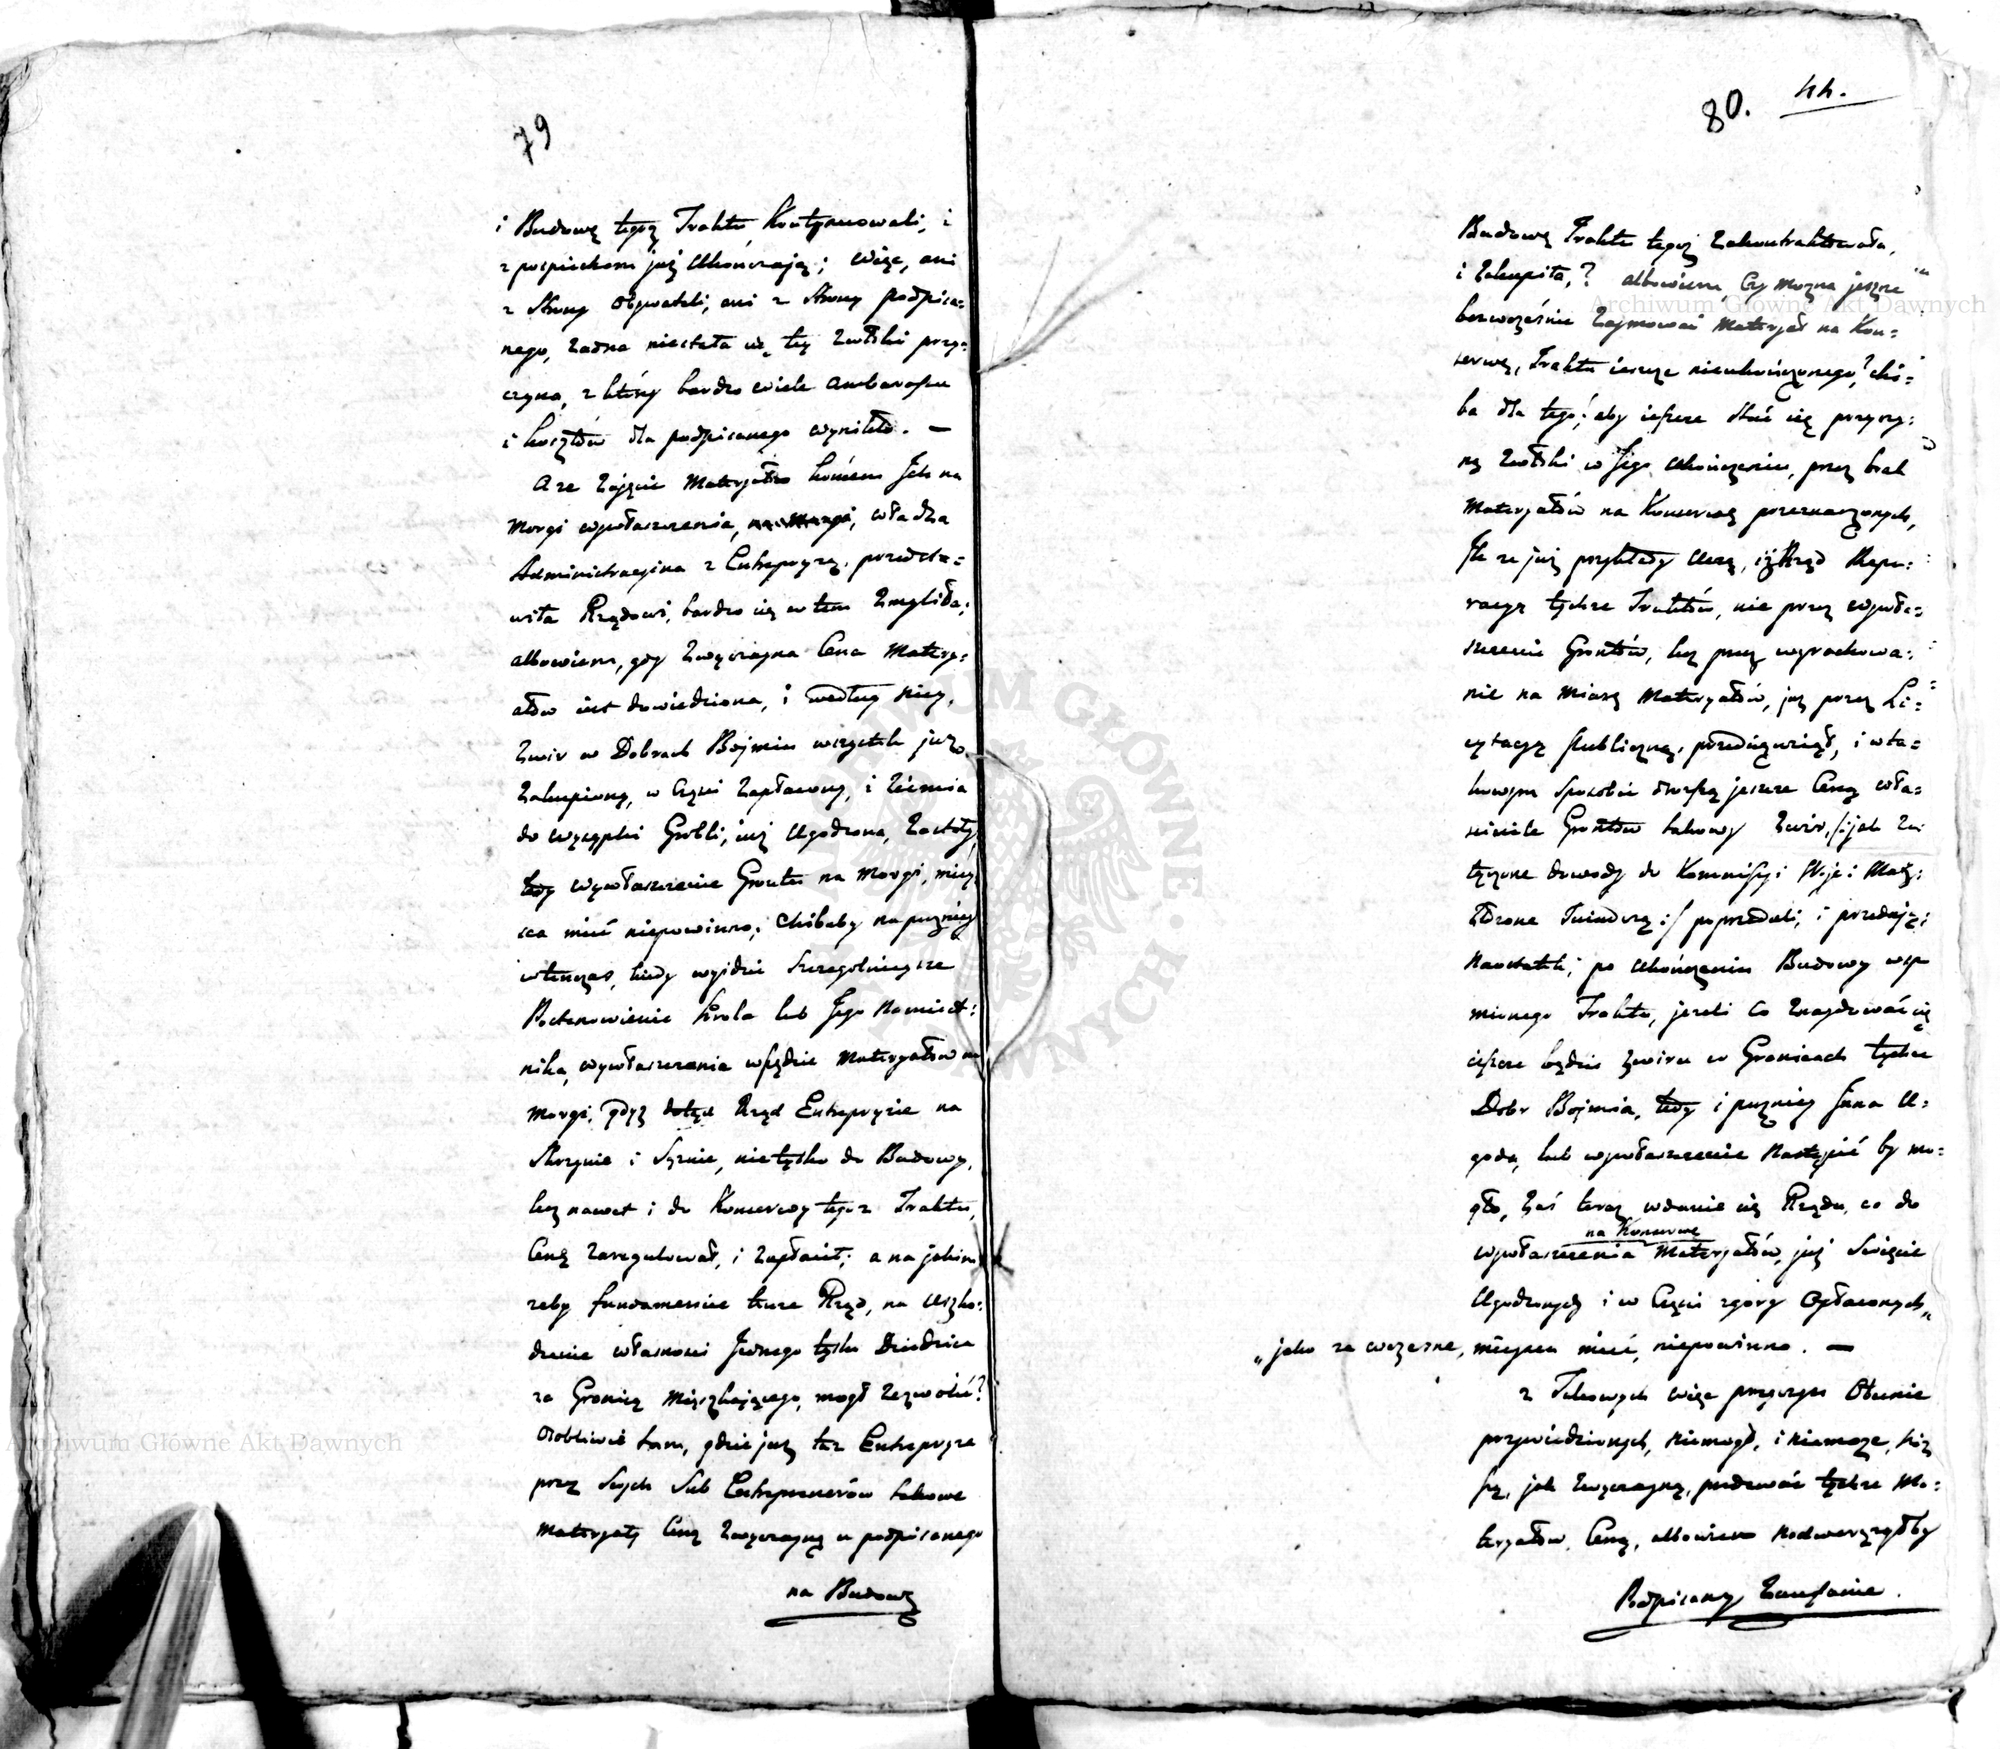 79
i Budowę tegoż Traktu Kontynuowali, i
z pospiechem już Ukończają; Więc, ani
z Strony Obywateli, ani z Strony podpisa=
nego, żadna niestała się tey Zwłoki przy=
czyna, z którey bardzo wiele Ambarasu
i kosztów dla podpisanego wynikło. —
A że Zajęcie Materyałów Jch na
Morgi wywłaszczenia, władza
Administracyjna z Entrepryzą, przedsta=
wiła Rządowi, bardzo się w tem Zmyliła,
albowiem, gdy Zwyczajna Cena Matery=
ałów iest dowiedziona, i według niey,
Żwir w Dobrach Bojmiu wszystek już
Zakupiony, w Części Zapłacony, i Ziemia
do wysypki Grobli, już Ugodzona, Została,
tedy wywłaszczenie Gruntu na Morgi, miey
sca mieć niepowinno; Chibaby napuzniey
wtenczas, kiedy wyidzie Szczególnieysze
Postanowienie Króla lub Jego Namiest=
nika, wywłaszczenia wszędzie Materyałów na
Morgi, gdyż dotąd Rząd Entrepryzie na
Skrzynie i Sążnie, nietylko do Budowy,
lecz nawet i do Konserwy tegoż Traktu,
Cenę Zaregulował, i Zapłacił; a na jakim
żeby fundamencie tenże Rząd, na Uszko=
dzenie własności Jednego tylko Dziedzica
za Granicą Mięszkającego, mogł Zezwolić?
Osobliwie tam, gdzie już taż Entrepryza
przez Swych Sub Entreprenerów takowe
Materyały Ceną Zwyczajną u podpisanego
na Budowę
80. 44.
Budowę Traktu tegoż Zakontraktowała,
i Zakupiła,? albowiem Czy Można jeszcze
bezwcześnie Zajmować Materyał na Kon=
serwę, Traktu ieszcze nieukończonego? chi=
ba dla tego; aby ieszcze Stać się przyczy=
ną Zwłoki w Jego Ukończeniu, przez brak
Materyałów na Konserwę przeznaczonych,
Jle że już przykłady Uczą, iż Rząd Repe=
racyę tychże Traktów, nie przez wywła=
szczenie Gruntów, lecz przez wyrachowa=
nie na Miarę Materyałów, już przez Li=
cytacyę Publiczną, przedsięwziął, i w ta=
kowym Sposobie drożfzą jeszcze Ceną wła=
ściciele Gruntów takowy Żwir, /:jak Za
łączone dowody do Kommifsyi Wje: i Mały
Złożone Twierdzą:/ poprzedali, i przedają;
Naostatek, po Ukończeniu Budowy wsp
mionego Traktu, jeżeli Co Znajdować się
ieszcze będzie Żwiru w Granicach tychże
Dobr Bojmia, tedy i puzniey Jnna U=
goda, lub wywłaszczenie Nastąpić by mo=
gło, Zaś teraz wdanie się Rządu, co do
na Konserwę
wywłaszczenia Materyałów, już Swięcie
Ugodzonych i w Części z góry Opłaconych„
„jako za wczesne, mieysca mieć, niepowinno. —
z Takowych więc przyczyn Obecnie
przywiedzionych, niemogł, i niemoże, niż
szą, jak Zwyczajną, podawać tychże Ma=
teryałów, Cenę, albowiem Nadweryżyłby
Podpisany Zaufanie.